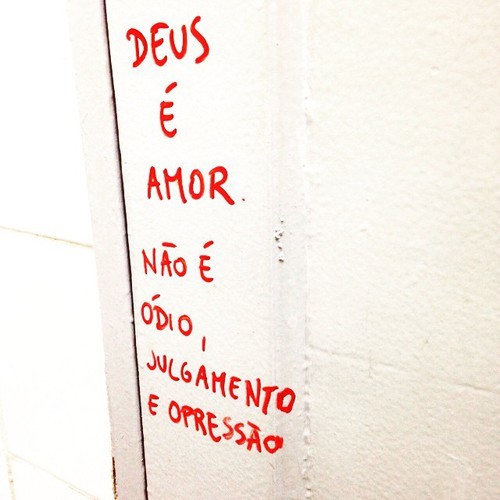 DEUS
É
AMOR.
NÃO É
ÓDIO,
JULGAMENTO
E OPRESSÃO